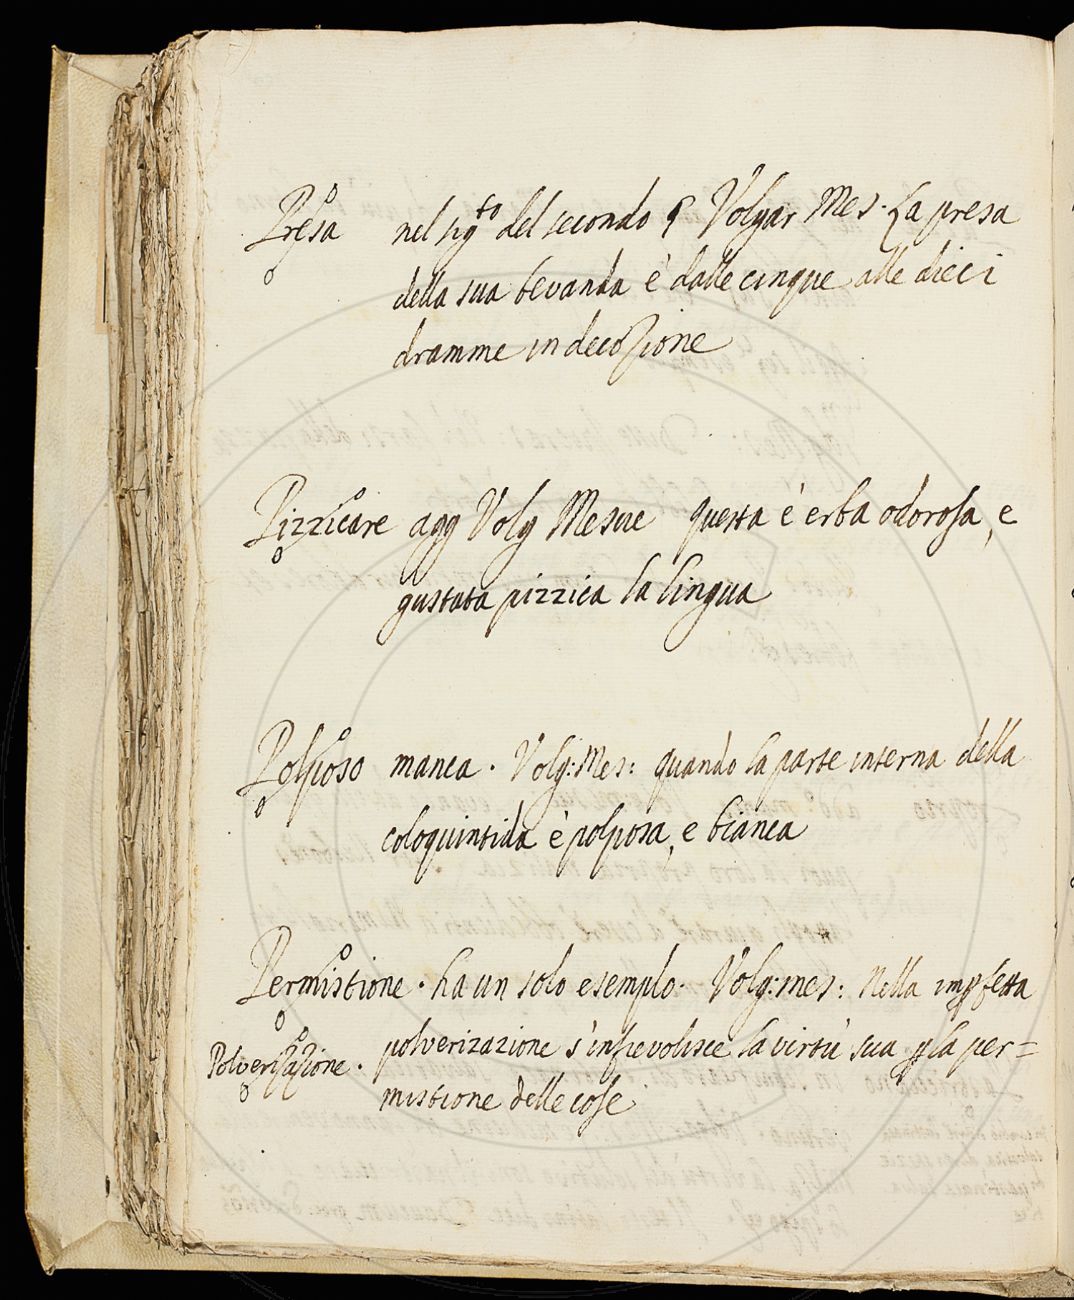 Presa nel sig.to del secondo § Volgar Mes. La presa
della sua bevanda è dalle cinque alle dieci
dramme in decozione
Pizzicare agg Volg Mesue questa è erba odorosa, e
gustata pizzica la lingua
Polposo manca. Volg: Mes: quando la parte interna della
coloquintida è polposa, e bianca
Permistione. ha un solo esempio. Volg: mes: Nella impfetta
Polverizazione. polverizazione s'infievolisce la virtù sua p la per=
mistione delle cose